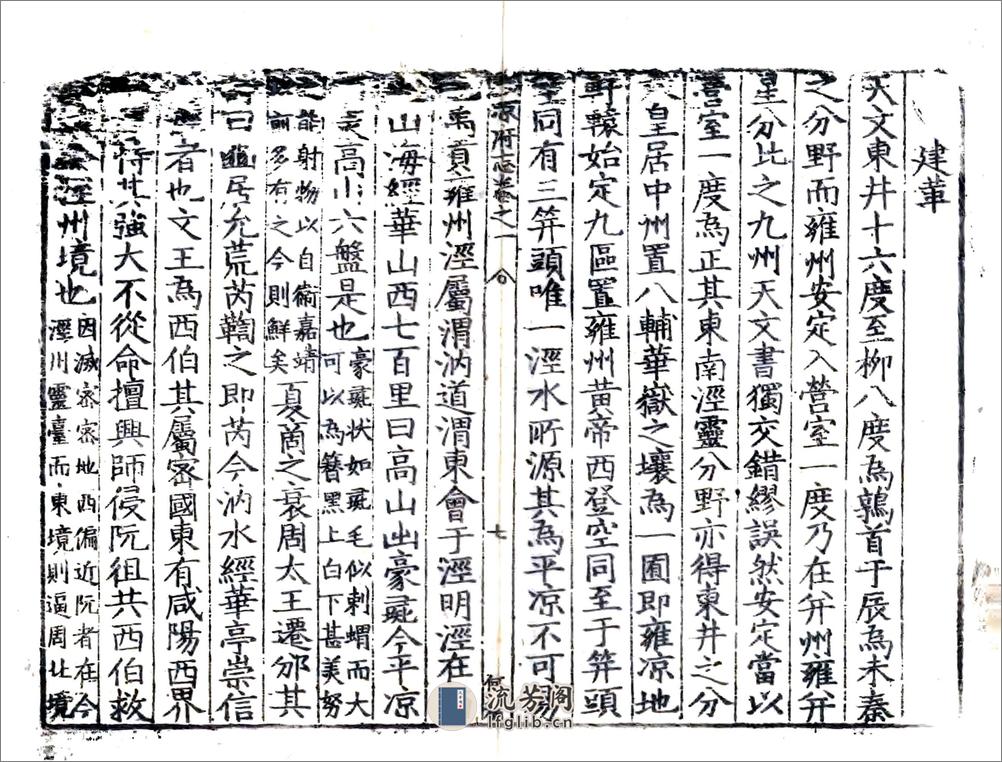 建革
天文東井十六度至柳八度為鶉首于辰為未秦
之分野而雍州安定入營室一度乃在并州雍并
星分比之九州天文書獨交錯繆誤然安定當以
營室一度為正其東南涇靈分野亦得東井之分
皇居中州置八輔華嶽之壤為一囿即雍凉地
軒轅始定九區置雍州黄帝西登空同至于笄頭
空同有三笄頭唯一涇水所源其為平凉不可易
凉府志卷之一
七
禹貢雍州涇屬渭汭道渭東會于涇明涇在
山海經華山西七百里曰高山出豪彘今平凉
高山六盤是也
豪彘状如彘毛似剌蝟而大
可以為簪黑上白下甚美努
能射物以自衞嘉靖
前多有之今則鮮矣
夏商之衰周太王遷邠其
曰豳居允荒芮鞫之即芮今汭水經華亭崇信
者也文王為西伯其屬密國東有咸陽西界
恃其強大不從命擅興師侵阮徂共西伯救
涇州境也
因滅密密地西偏近阮者在今
涇川靈臺而東境則逼周北境
流芳阁
lfglib.cn